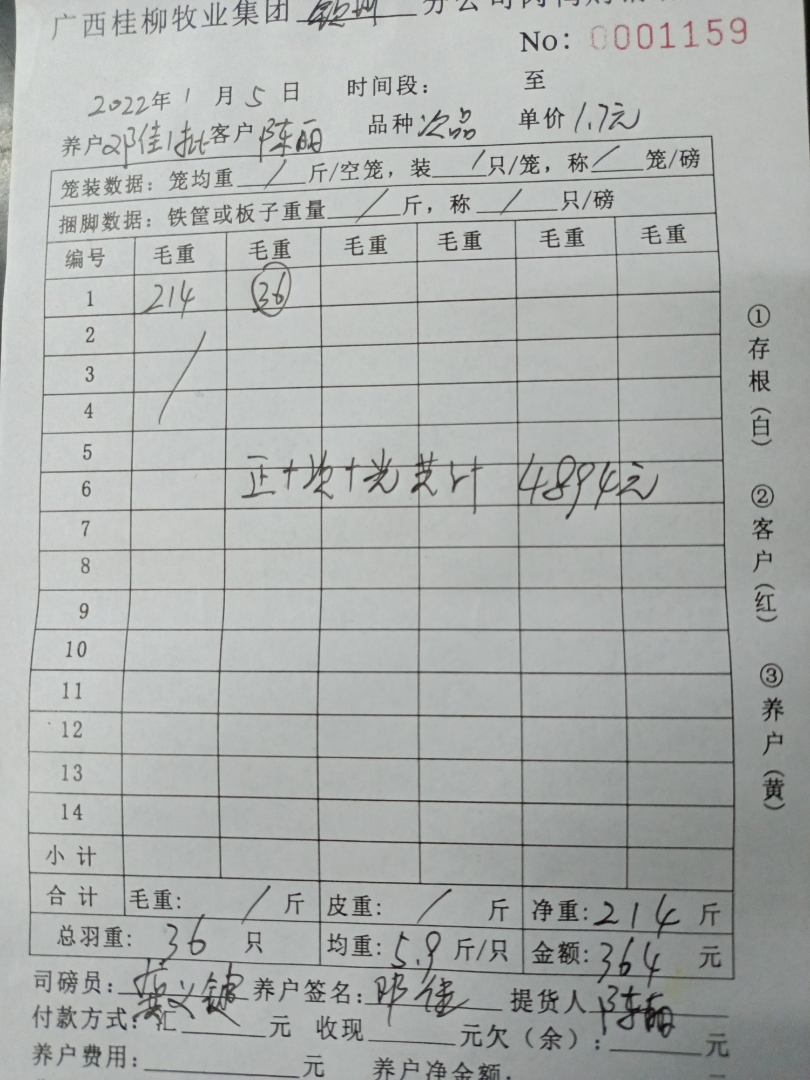 广西桂柳牧业集团 钦州 分公司
No: 0001159
2022年 1 月 5 日 时间段: 至
养户 邓佳1批 客户 陈丽 品种 次品 单价 1.7元
笼装数据: 笼均重 / 斤/空笼, 装 / 只/笼, 称 / 笼/磅
捆脚数据: 铁筐或板子重量 / 斤, 称 / 只/磅
编号 毛重 毛重 毛重 毛重 毛重 毛重
1 214 36
2
3
4 /
5
6 正+次+光共计 4894元
7
8
9
10
11
12
13
14
小计
合计 毛重: / 斤 皮重: / 斤 净重: 214 斤
总羽重: 36 只 均重: 5.9 斤/只 金额: 364 元
司磅员: 养户签名: 邓佳 提货人 陈丽
付款方式: 汇 元 收现 元欠(余): 元
养户费用: 元 养户净金额:
①存根(白) ②客户(红) ③养户(黄)